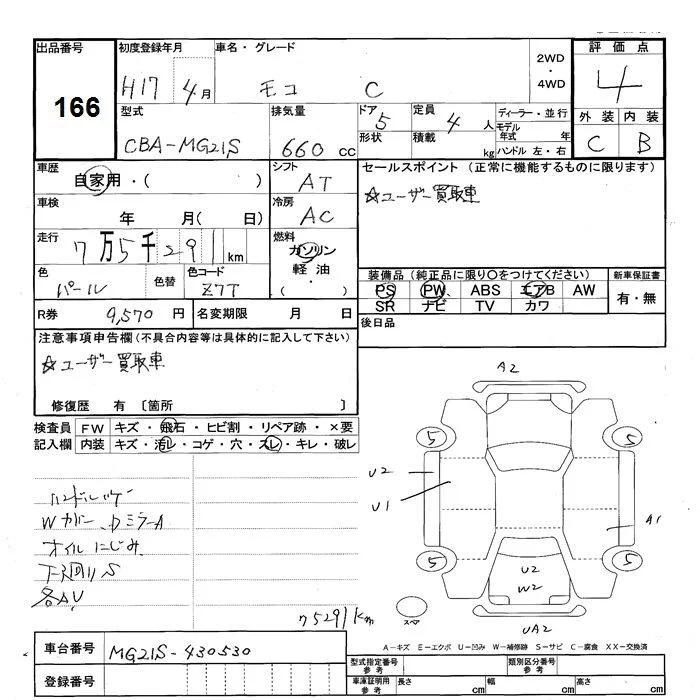 出品番号 初度登録年月 車名・グレード 評価点
166
H17 4月 モコ C 2WD・4WD 4
型式 排気量 ドア 5 定員 4人 ディーラー・並行 外装 内装
CBA-MG21S 660 CC 形状 積載 kg モデル年式 年 C B
ハンドル 左・右
車歴 シフト セールスポイント (正常に機能するものに限ります)
自家用・( ) AT ☆ユーザー買取車
車検 冷房
年 月( 日) AC
走行 燃料
7万5千291km ガソリン
色 色替 色コード 軽油 装備品 (純正品に限り○をつけてください) 新車保証書
パール Z7T ・( ) PS PW ABS エアB AW 有・無
SR ナビ TV カワ
R券 9,570円 名変期限 月 日 後日品
注意事項申告欄(不具合内容等は具体的に記入して下さい)
☆ユーザー買取車
修復歴 有 〔箇所 〕
検査員 FW キズ・飛石・ヒビ割・リペア跡・×要
記入欄 内装 キズ・汚レ・コゲ・穴・スレ・キレ・破レ
A2
5 5
U2
U1 A1
ハンドルスレ
Wカバー、Dミラー A
オイルにじみ
下廻り S
各AU
5 5
U2
W2
スペア
75291km UA2
A-キズ E-エクボ U-凹み W-補修跡 S-サビ C-腐食 XX-交換済
車台番号 MG21S-430530
登録番号
型式指定番号 参考 類別区分番号 参考
車庫証明用 参考 長さ cm 幅 cm 高さ cm